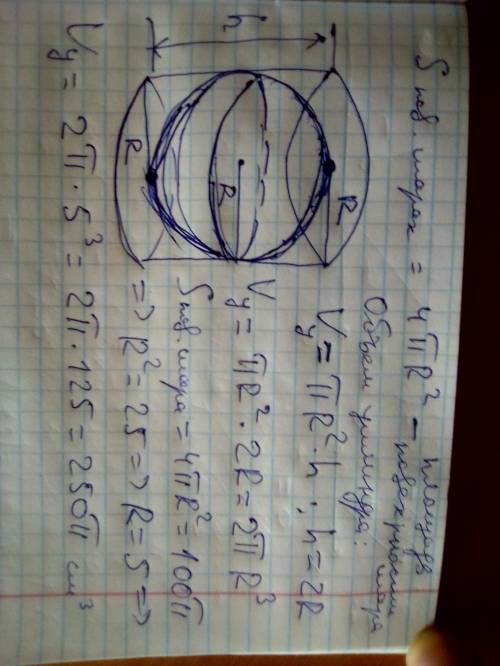 S пов. шара = 4πR² – площадь
поверхности
шара
Объем цилиндра:
h
R
R
R
Vy = πR²·h ; h = 2R
Vy = πR²·2R = 2πR³
S пов. шара = 4πR² = 100π
=> R² = 25 => R = 5 =>
Vy = 2π·5³ = 2π·125 = 250π см³